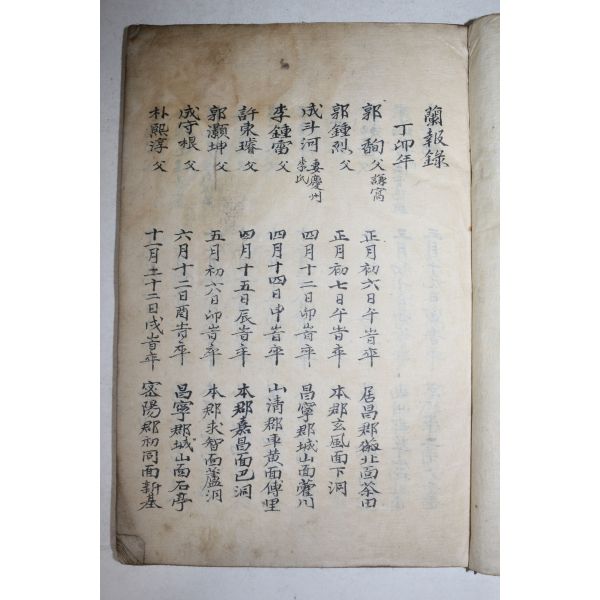 蘭報錄
丁卯年
郭 父 謙窩 正月初六日午峕卒 居昌郡 北面茶田
郭鍾烈 父 正月初七日午峕卒 本郡玄風面下洞
成斗河 妻慶州李氏 四月十二日卯峕卒 昌寧郡城山面 川
李鍾雷 父 四月十四日申峕卒 山清郡車黃面傅里
許東璿 父 四月十五日辰峕卒 本郡嘉昌面巴洞
郭灝坤 父 五月初六日卯峕卒 本郡求智面 洞
成守根 父 六月十二日酉峕卒 昌寧郡城山面石亭
朴熙淳 父 十一月 十二日戌峕卒 密陽郡初同面新基